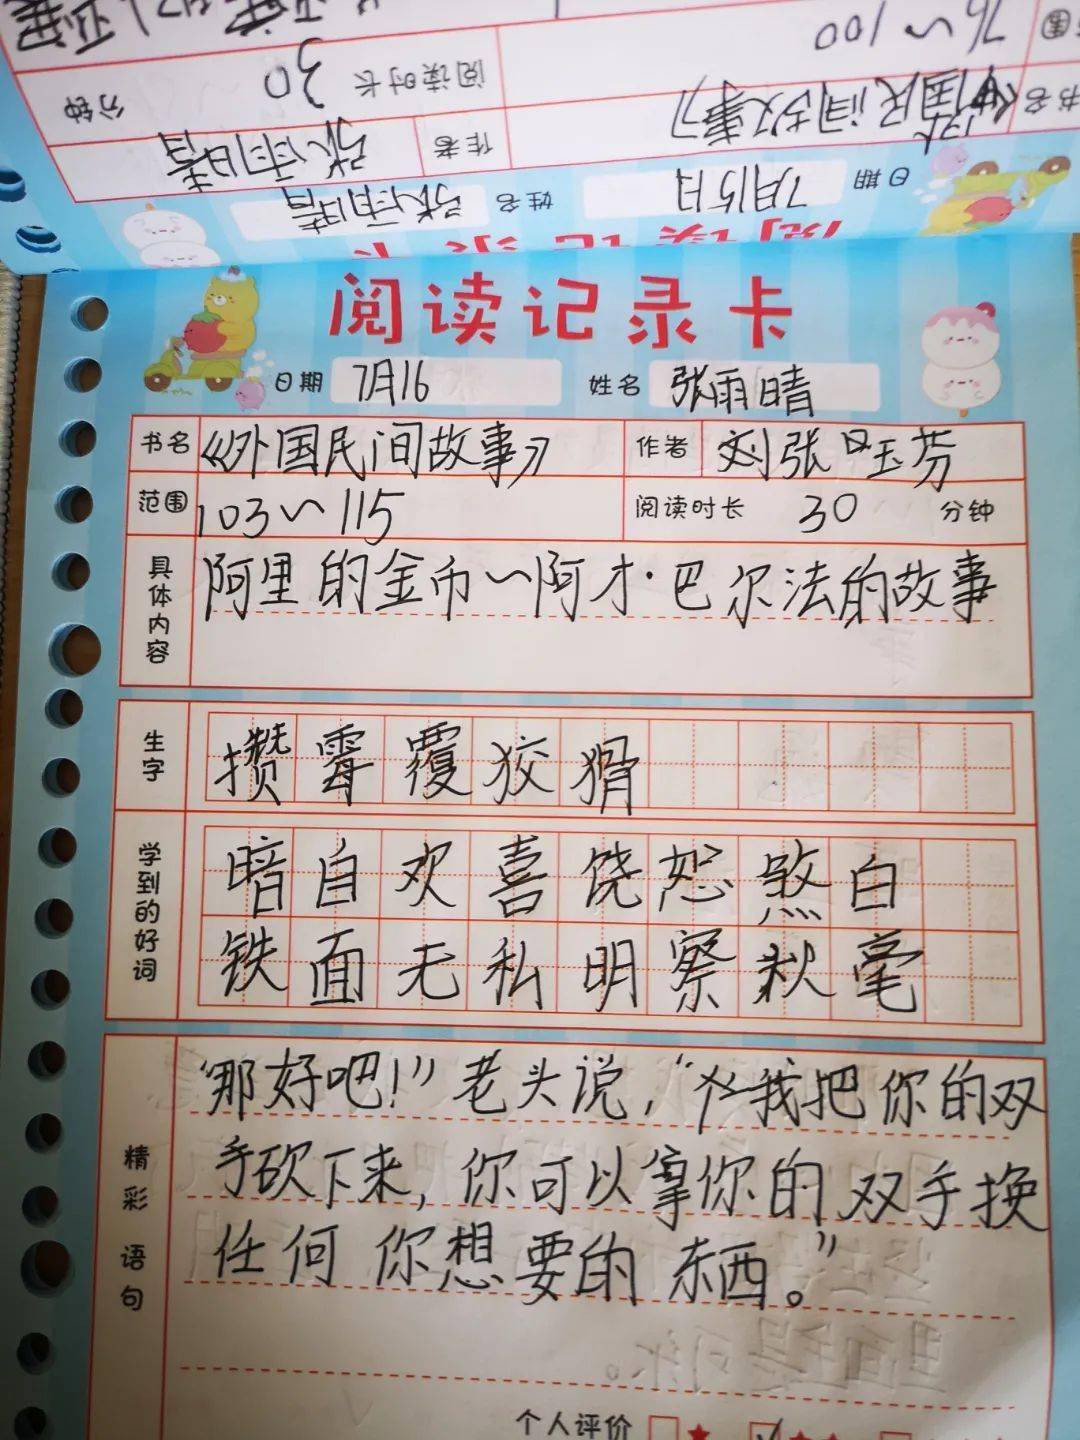 76~100
分钟 30 阅读时长
作者 张雨晴
日期 7月15日 姓名 张雨晴
阅读记录卡
阅读记录卡
日期 7月16 姓名 张雨晴
书名 《外国民间故事》 作者
范围 103~115 阅读时长 30 分钟
具体内容 阿里的金币~阿才·巴尔法的故事
生字 攒霉覆狡猾
学到的好词 暗自欢喜饶恕煞白
铁面无私明察秋毫
精彩语句 “那好吧!”老头说,“我把你的双
手砍下来,你可以拿你的双手换
任何你想要的东西。”
个人评价